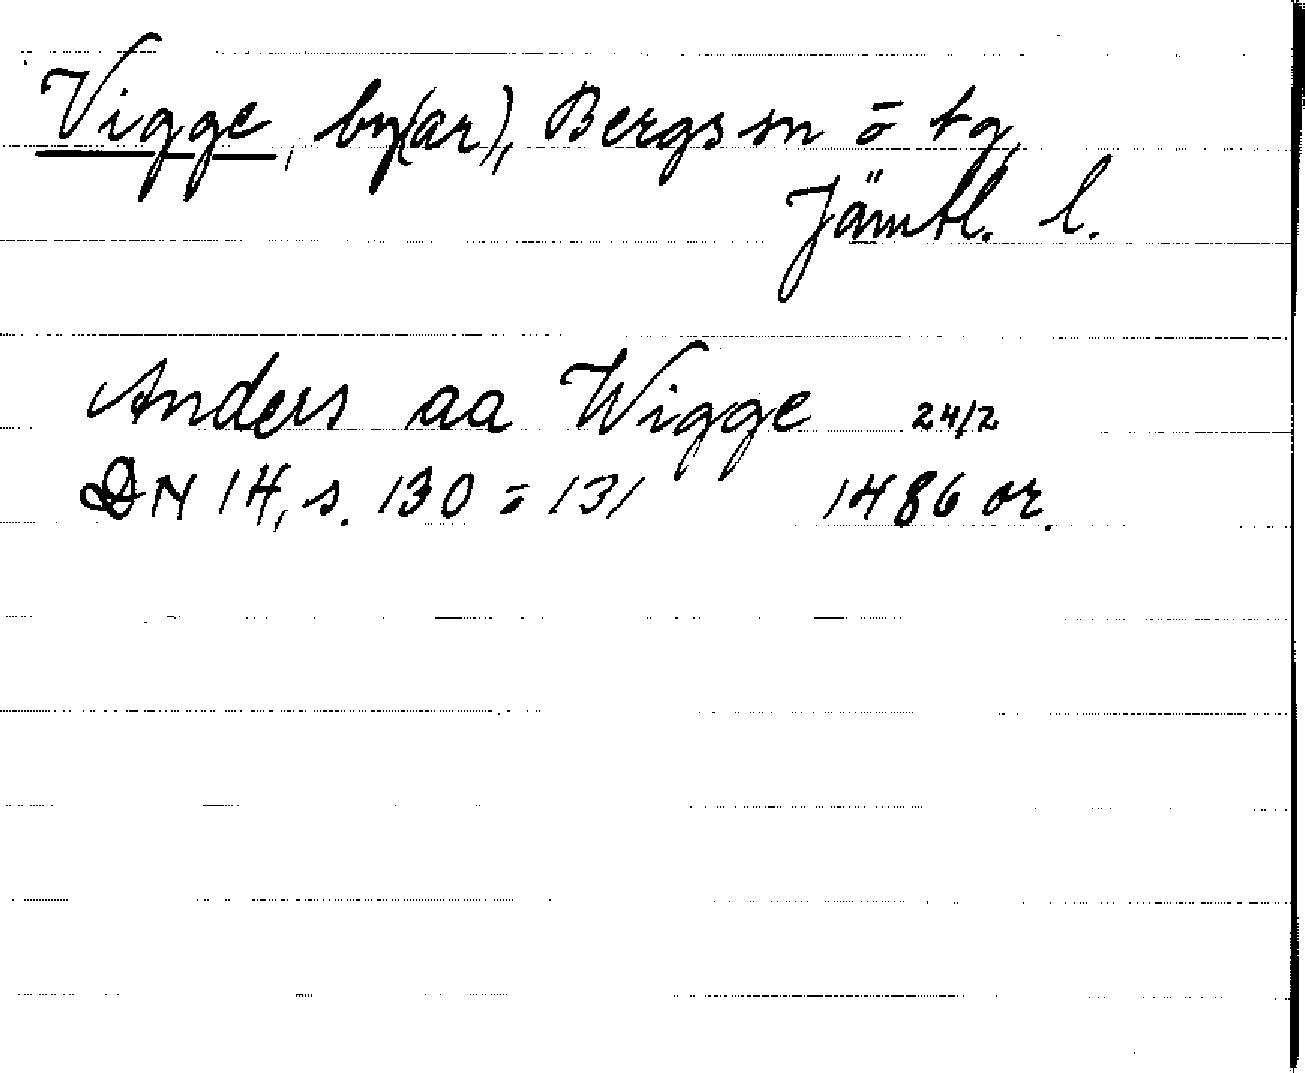 Vigge, by(ar), Bergs sn o tg,
Jämtl. l.
Anders aa Wigge 24/2
DN 14, s. 130 o 131 1486 or.